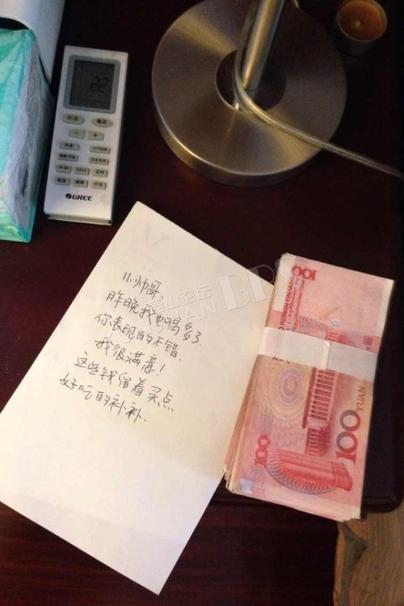 22
GREE
小帅哥
昨晚我也喝多了
你表现的不错.
我很满意!
这些钱留着买点
好吃的补补.
100
YUAN
100
100